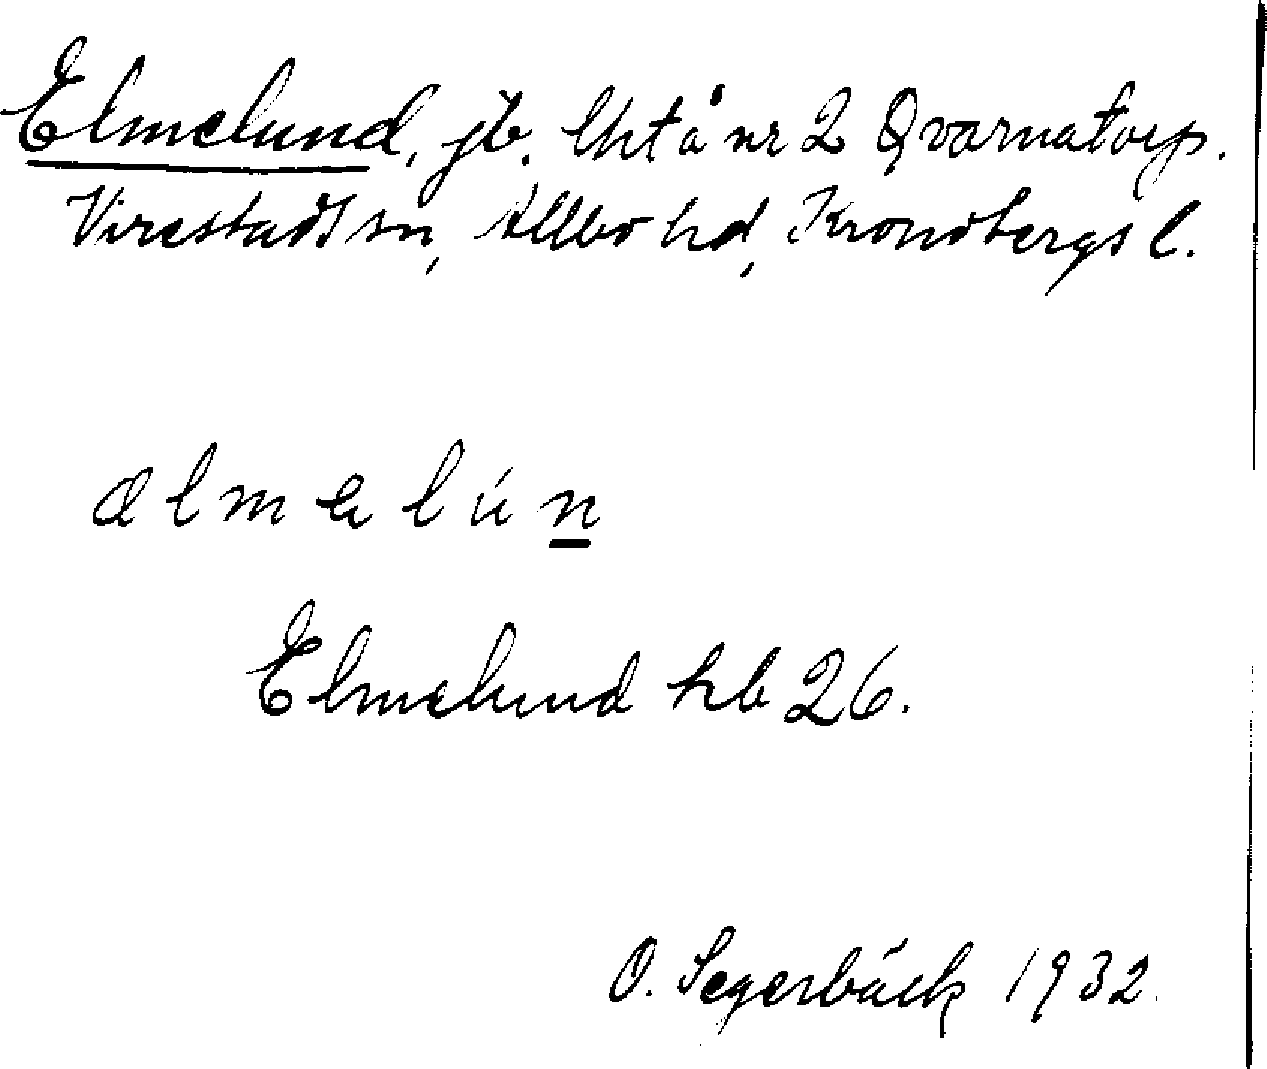 Elmelund, jb. Urtå nr 2 Qvarnatorp.
Virestads sn, Allbo hd, Kronobergs l.
ælmelún
Elmelund hb 26.
O. Segerbäck 1932.